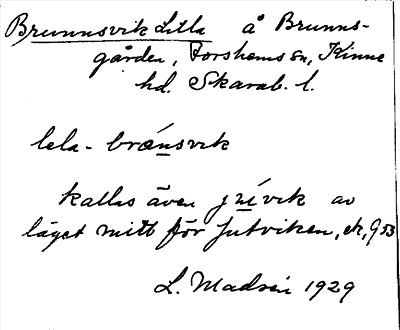 Brunnsvik Lilla å Brunns-
gården, Forshems sn, Kinne
hd. Skarab. l.
lela-brǽnsvik
kallas även jnívik av
läget mitt för Jutviken, ek, 953
L. Madsén 1929